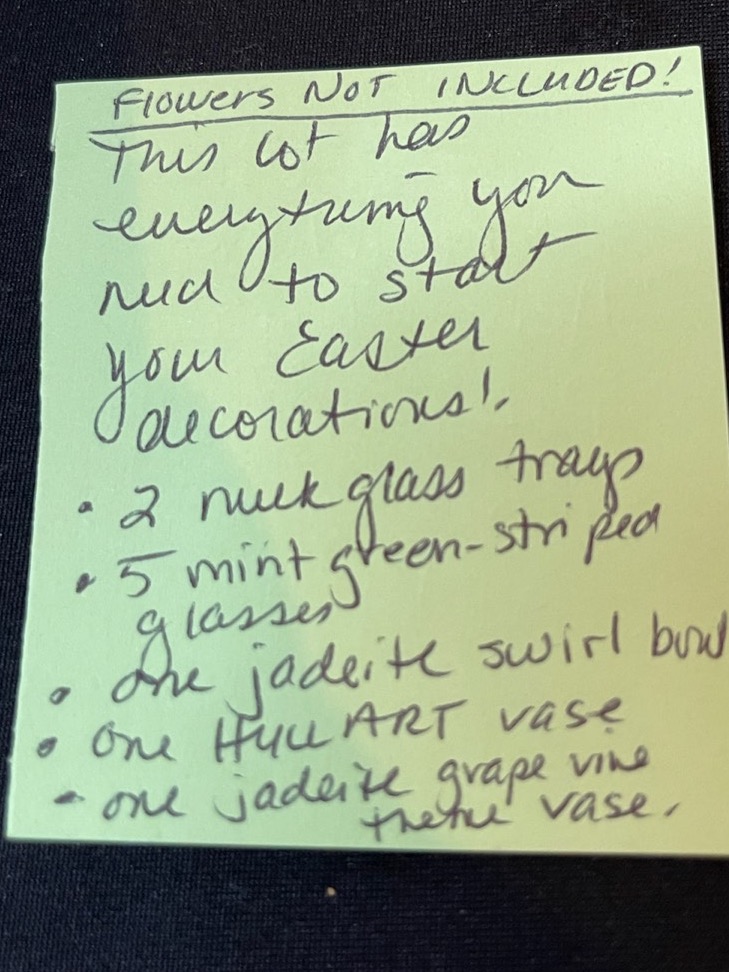 Flowers NOT INCLUDED!
This lot has
everything you
need to start
your Easter
decorations!
• 2 milk glass trays
• 5 mint green-striped
glasses
• one jadeite swirl bowl
• one Hull ART vase
• one jadeite grape vine
theme vase.